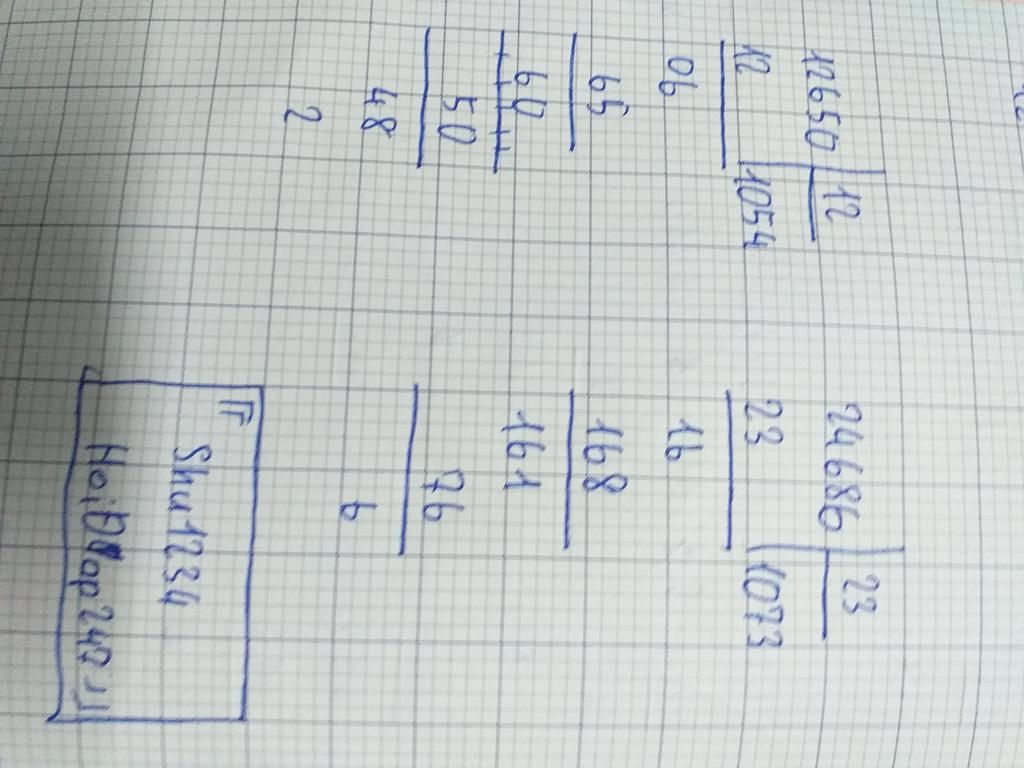 12650 12
12 1054
06
65
60
50
48
2
24686 23
23 1073
16
168
161
76
6
Shu1234